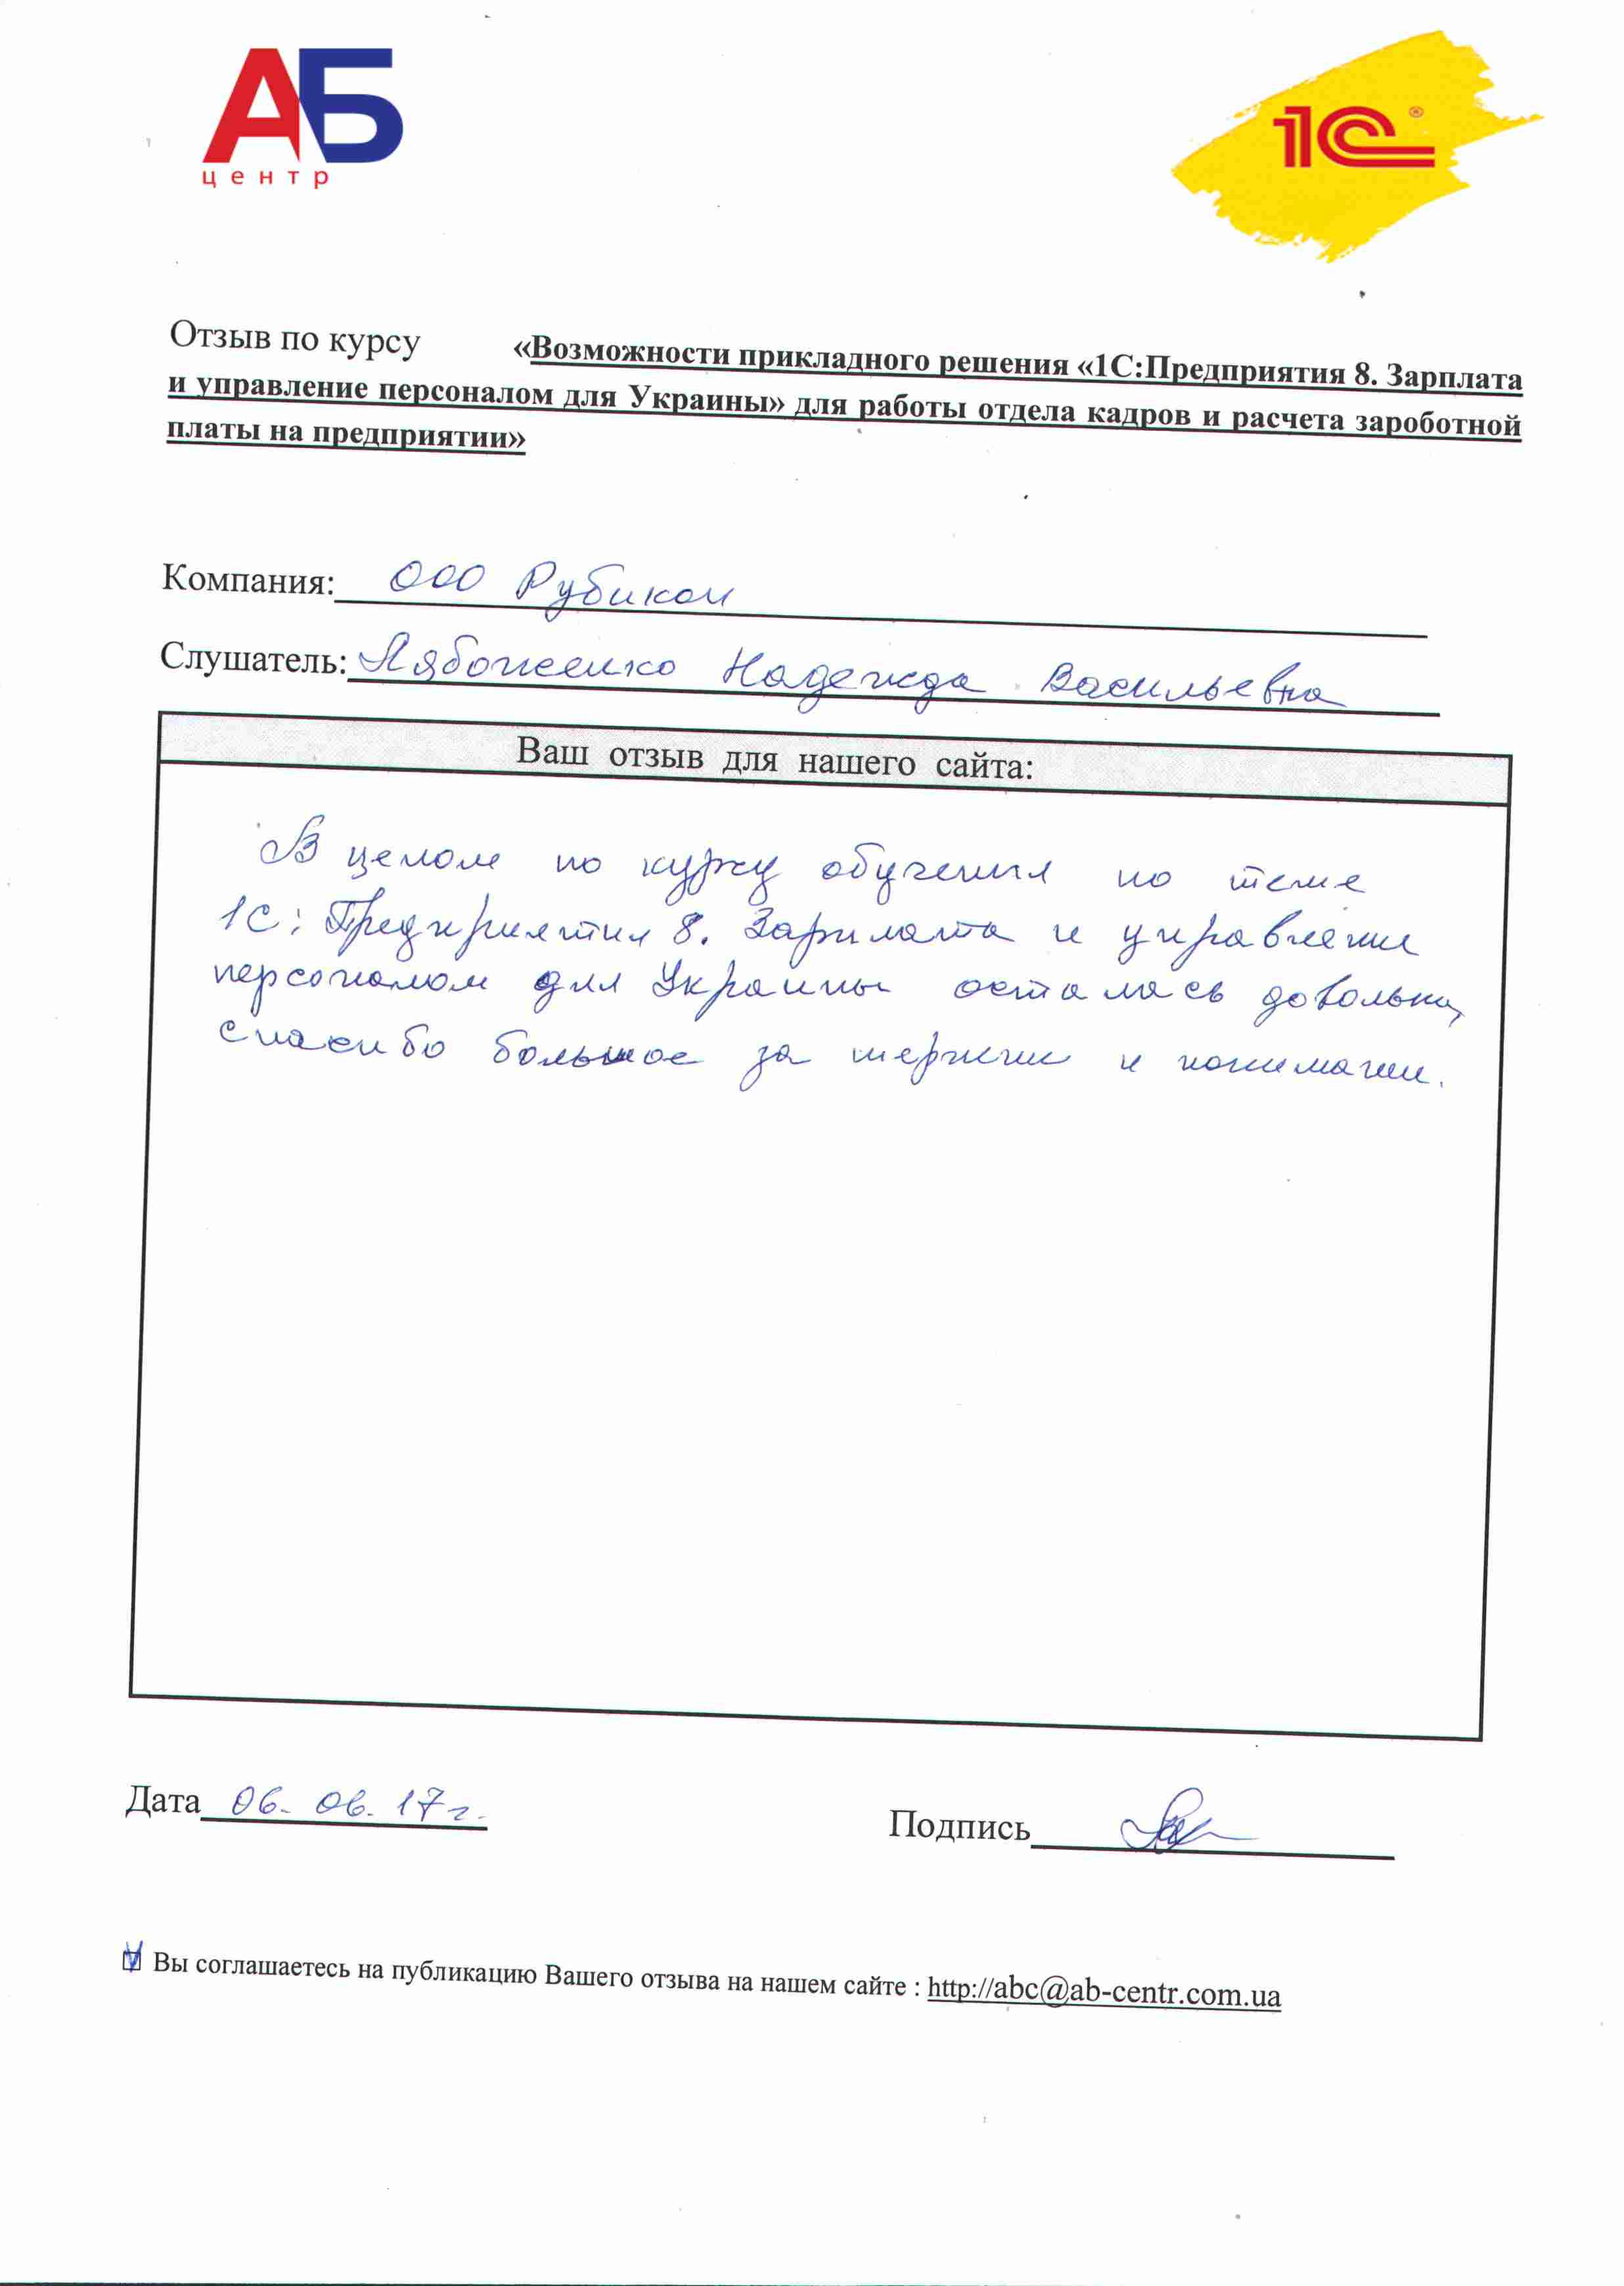 АБ
центр
1С®
Отзыв по курсу «Возможности прикладного решения «1С:Предприятия 8. Зарплата
и управление персоналом для Украины» для работы отдела кадров и расчета зароботной
платы на предприятии»
Компания: ООО Рубикон
Слушатель: Лябоженко Надежда Васильевна
Ваш отзыв для нашего сайта:
В целом по курсу обучения по теме
1С: Предприятия 8. Зарплата и управление
персоналом для Украины осталась довольна,
спасибо большое за терпение и понимание.
Дата 06. 06. 17 г.
Подпись
Вы соглашаетесь на публикацию Вашего отзыва на нашем сайте : http://abc@ab-centr.com.ua